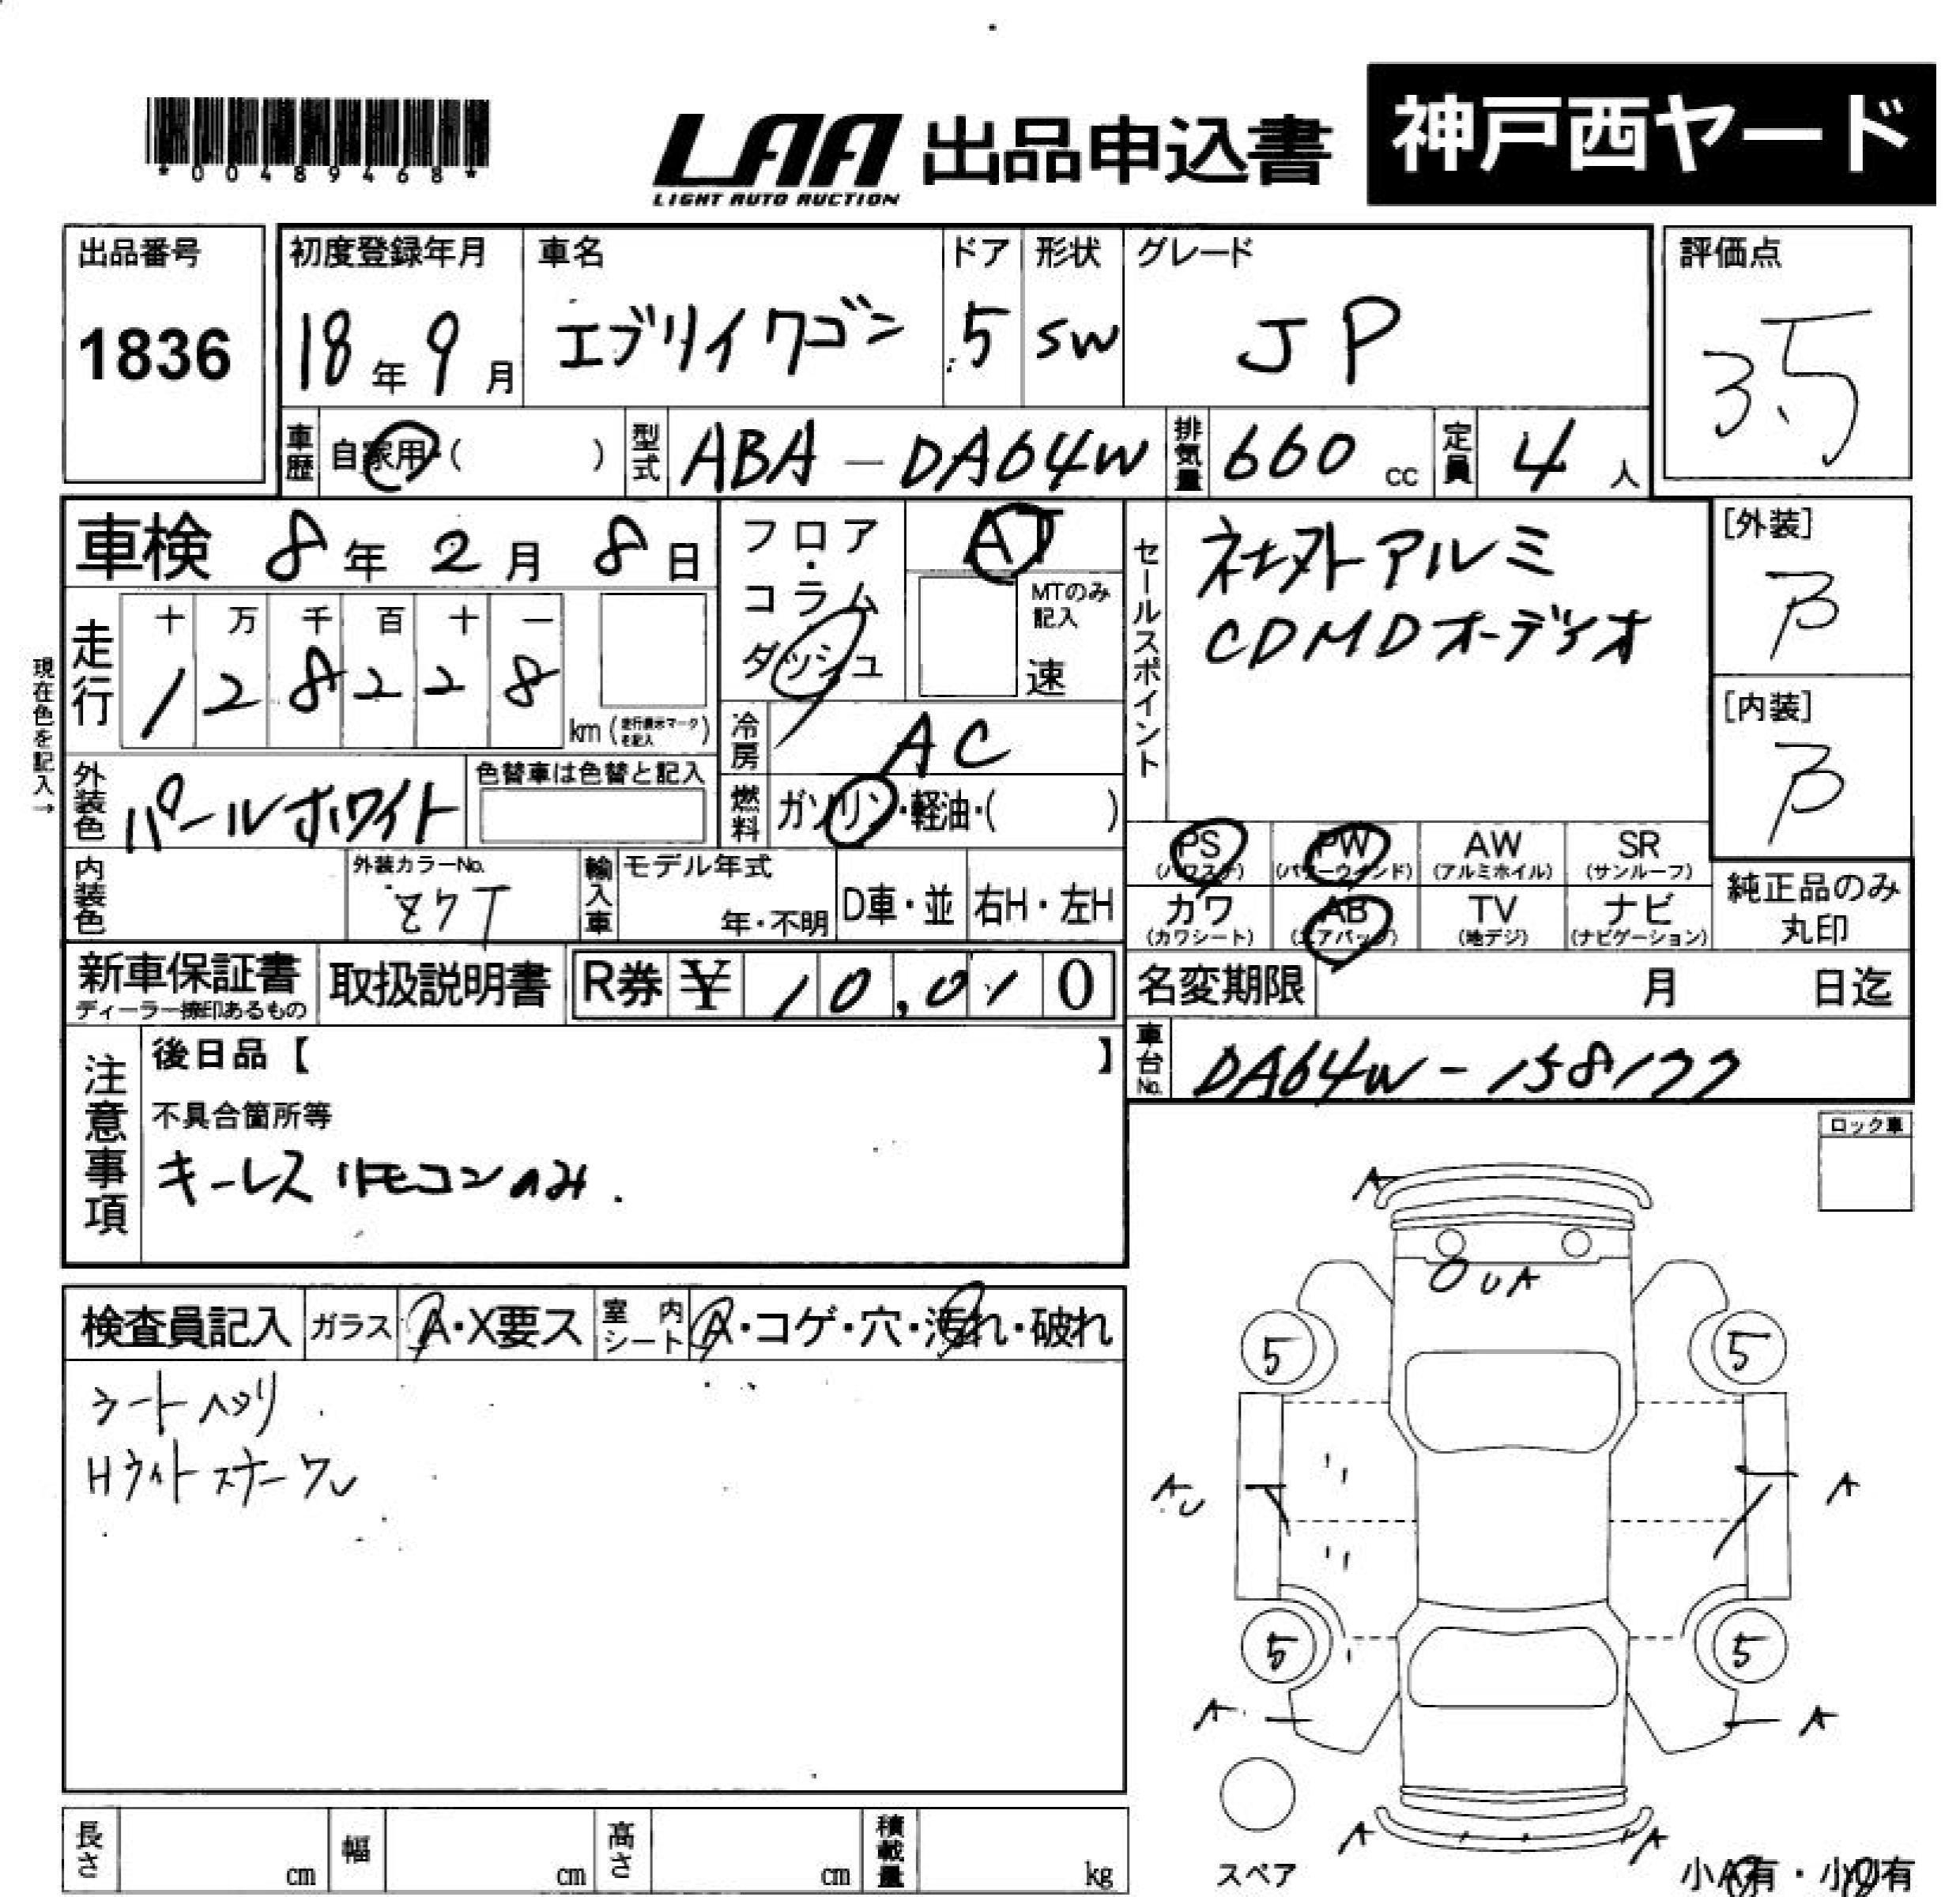 *00489468*
LAA 出品申込書 神戸西ヤード
LIGHT AUTO AUCTION
出品番号
1836
初度登録年月
18年9月
車名
エブリイワゴン
ドア
5
形状
SW
グレード
JP
評価点
3.5
車歴 自家用・( )
型式 ABA-DA64W
排気量 660 cc
定員 4 人
車検 8年2月8日
フロア・コラム
ダッシュ
AT
MTのみ記入
速
セールスポイント
社外アルミ
CDMDオーディオ
[外装]
B
[内装]
B
現在色を記入→
走行
十 万 千 百 十 一
1 2 8 2 2 8
km (走行表示マークを記入)
冷房 AC
燃料 ガソリン・軽油・( )
外装色 パールホワイト
色替車は色替と記入
PS (パワステ) PW (パワーウインド) AW (アルミホイル) SR (サンルーフ)
カワ (カワシート) AB (エアバッグ) TV (地デジ) ナビ (ナビゲーション)
純正品のみ丸印
内装色
外装カラーNo.
Z7T
輸入車 モデル年式
年・不明
D車・並 右H・左H
新車保証書
ディーラー捺印あるもの
取扱説明書
R券 ¥ 10,010
名変期限 月 日迄
車台No. DA64W-158177
注意事項
後日品【 】
不具合箇所等
キーレスリモコンのみ.
ロック車
検査員記入 ガラス A・X要ス 室内シート A・コゲ・穴・汚れ・破れ
シートヘタリ
Hライトスモーク
A
UA
5 5
AU A
5 5
A A
A A
スペア
小A有・小U有
長さ cm 幅 cm 高さ cm 積載量 kg